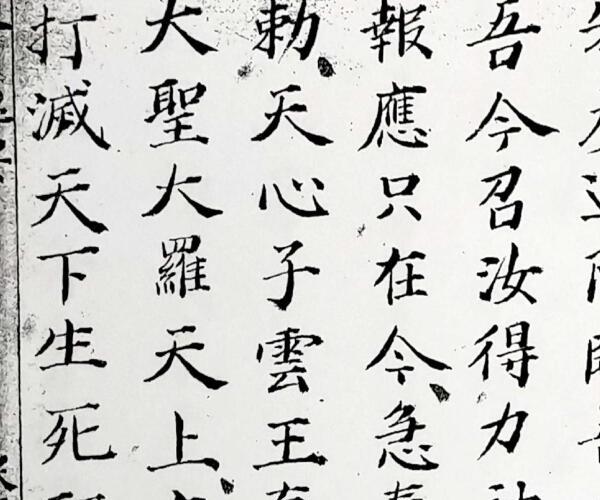 吾今召汝得力
報應只在今急
勅天心子雲王
大聖大羅天上
打滅天下生死